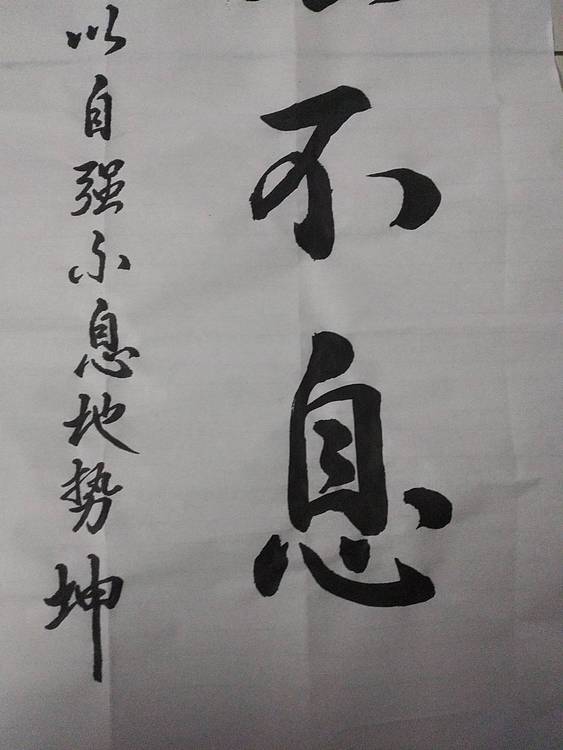 不息
以自强不息地势坤